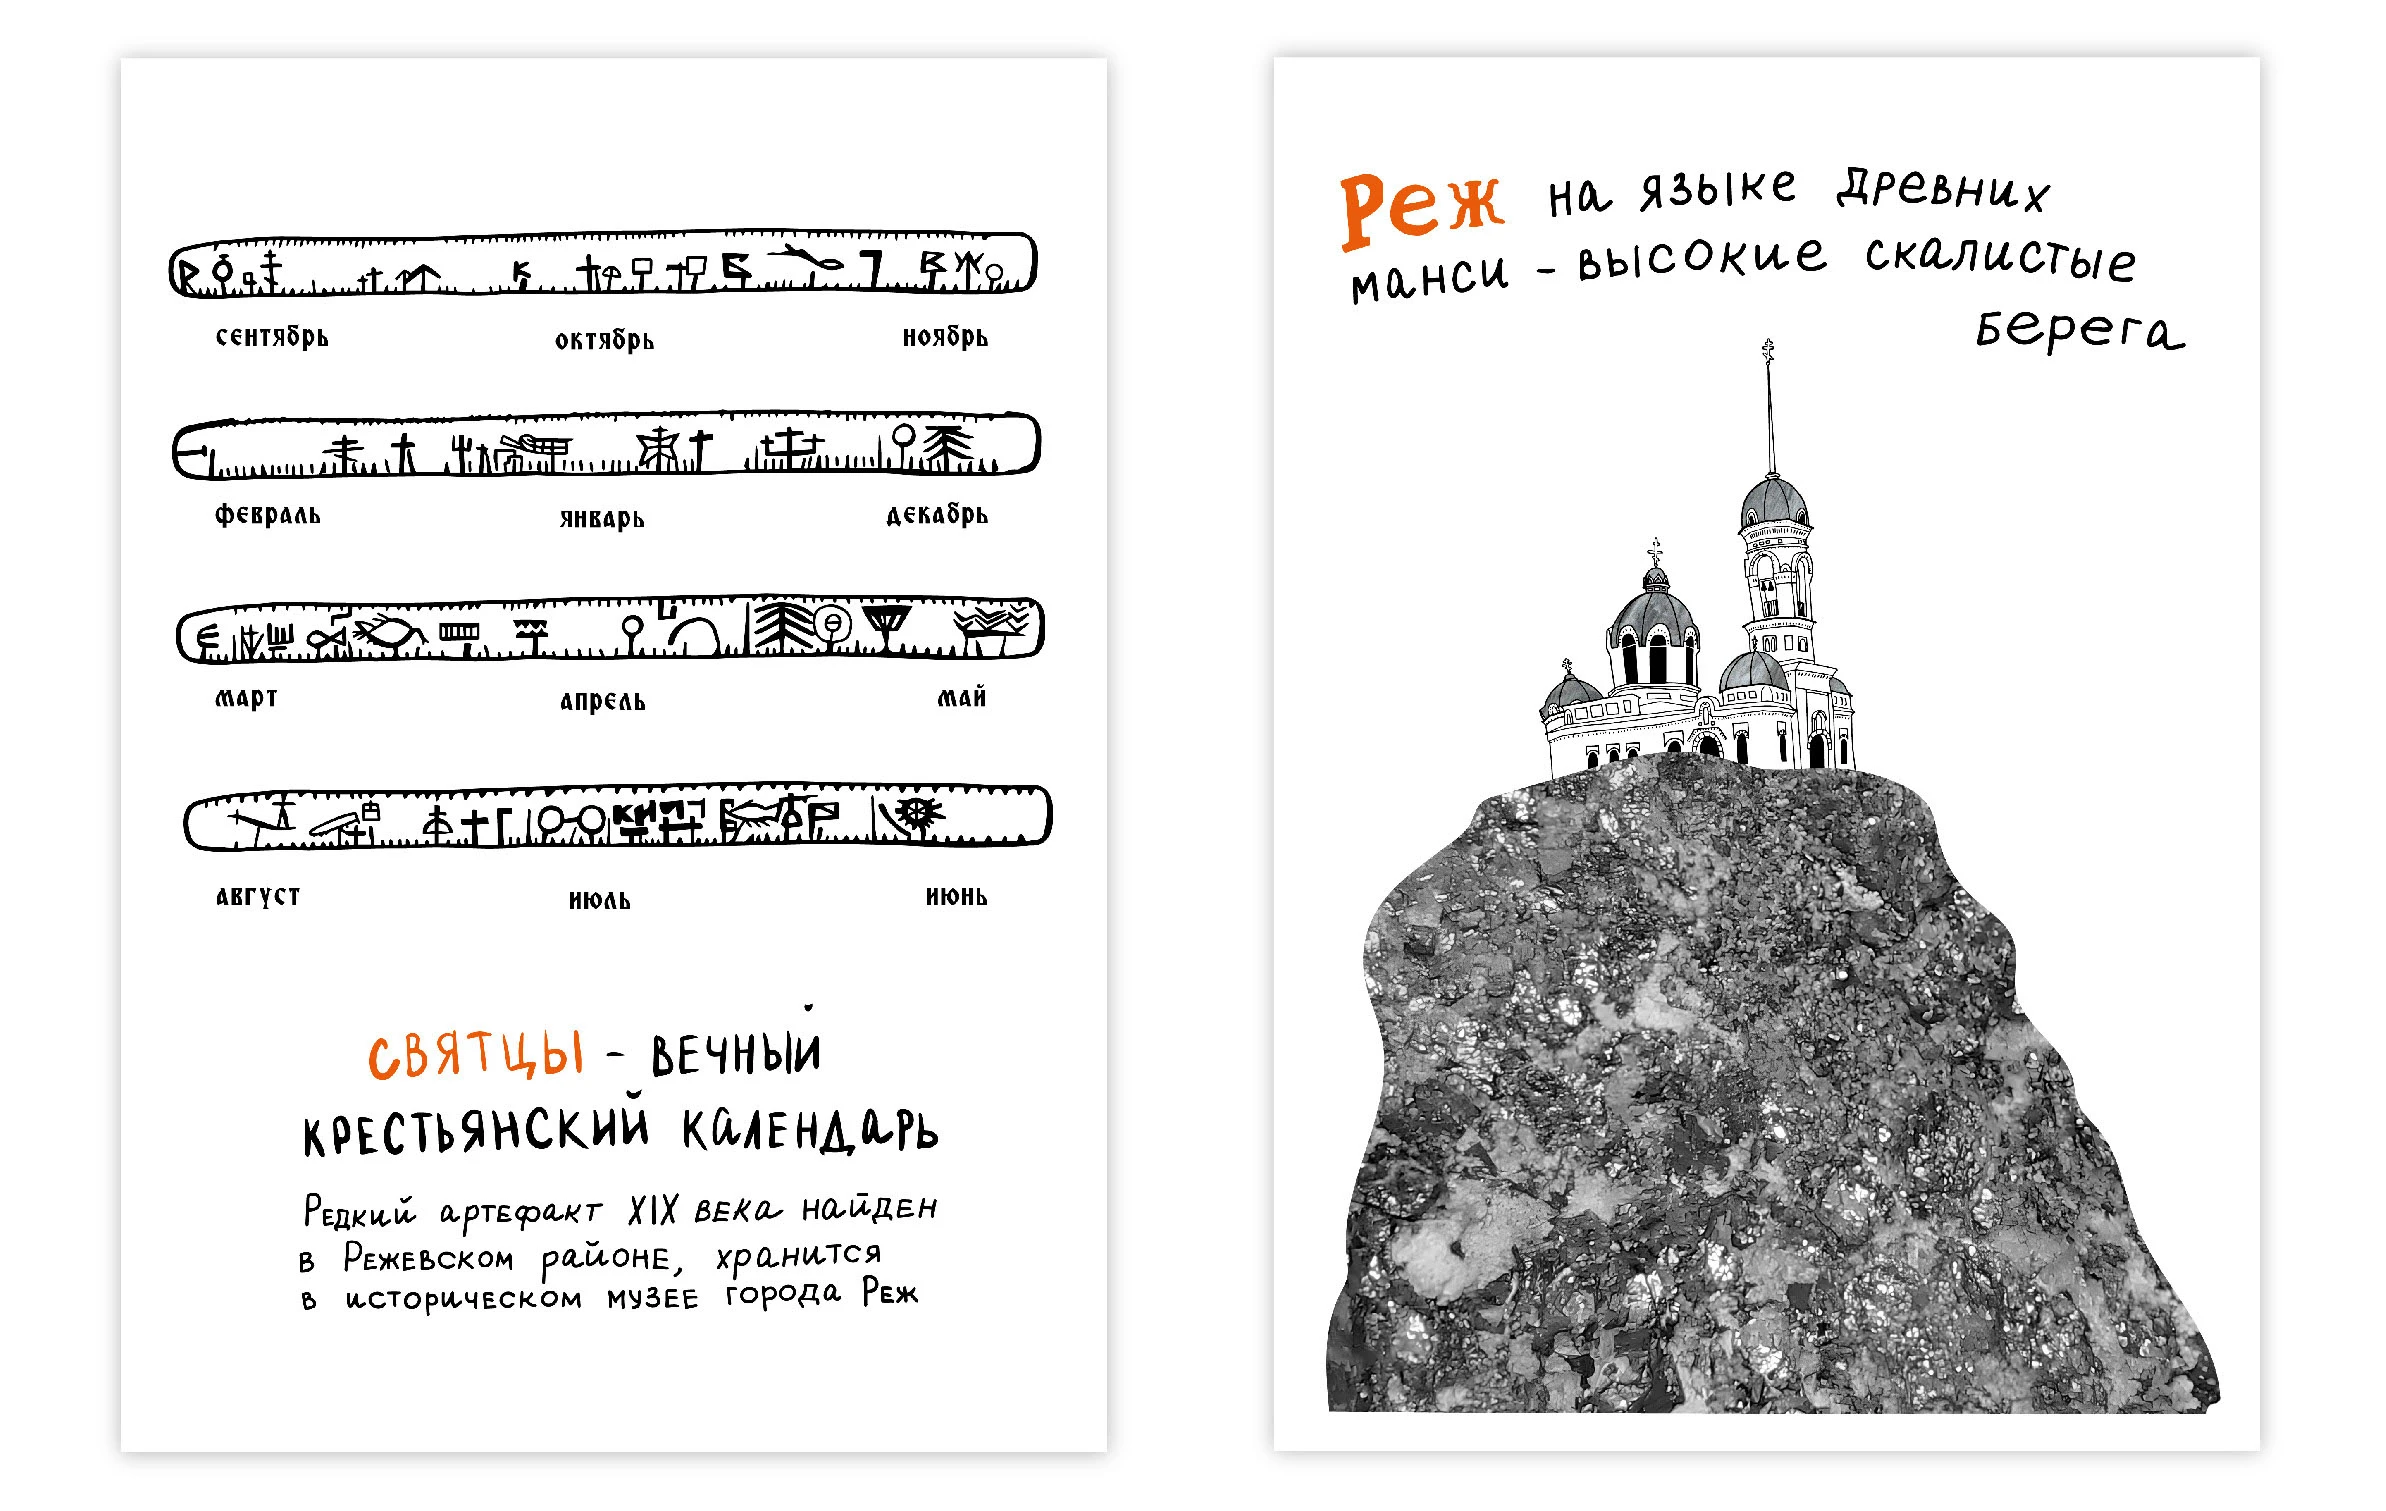 сентябрь октябрь ноябрь
февраль январь декабрь
март апрель май
август июль июнь
святцы - вечный
крестьянский календарь
Редкий артефакт XIX века найден
в Режевском районе, хранится
в историческом музее города Реж
Реж на языке древних
манси - высокие скалистые
берега